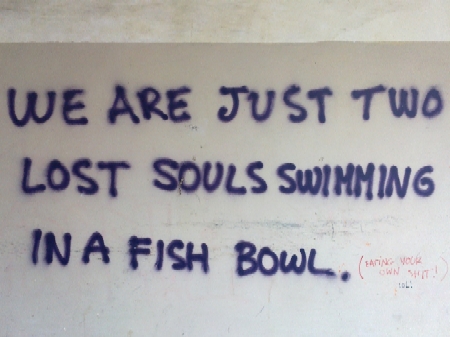 WE ARE JUST TWO
LOST SOULS SWIMMING
IN A FISH BOWL.
(EATING YOUR
OWN